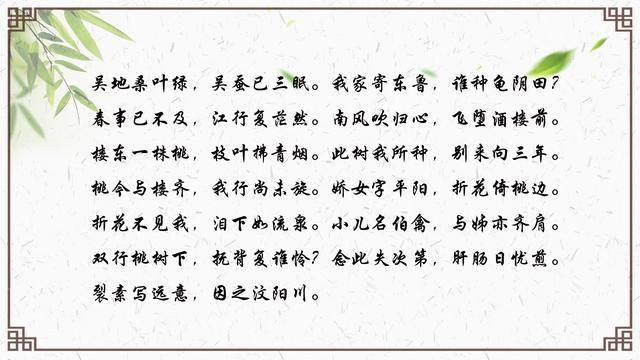 吴地桑叶绿，吴蚕已三眠。我家寄东鲁，谁种龟阴田？
春事已不及，江行复茫然。南风吹归心，飞堕酒楼前。
楼东一株桃，枝叶拂青烟。此树我所种，别来向三年。
桃今与楼齐，我行尚未旋。娇女字平阳，折花倚桃边。
折花不见我，泪下如流泉。小儿名伯禽，与姊亦齐肩。
双行桃树下，抚背复谁怜？念此失次第，肝肠日忧煎。
裂素写远意，因之汶阳川。